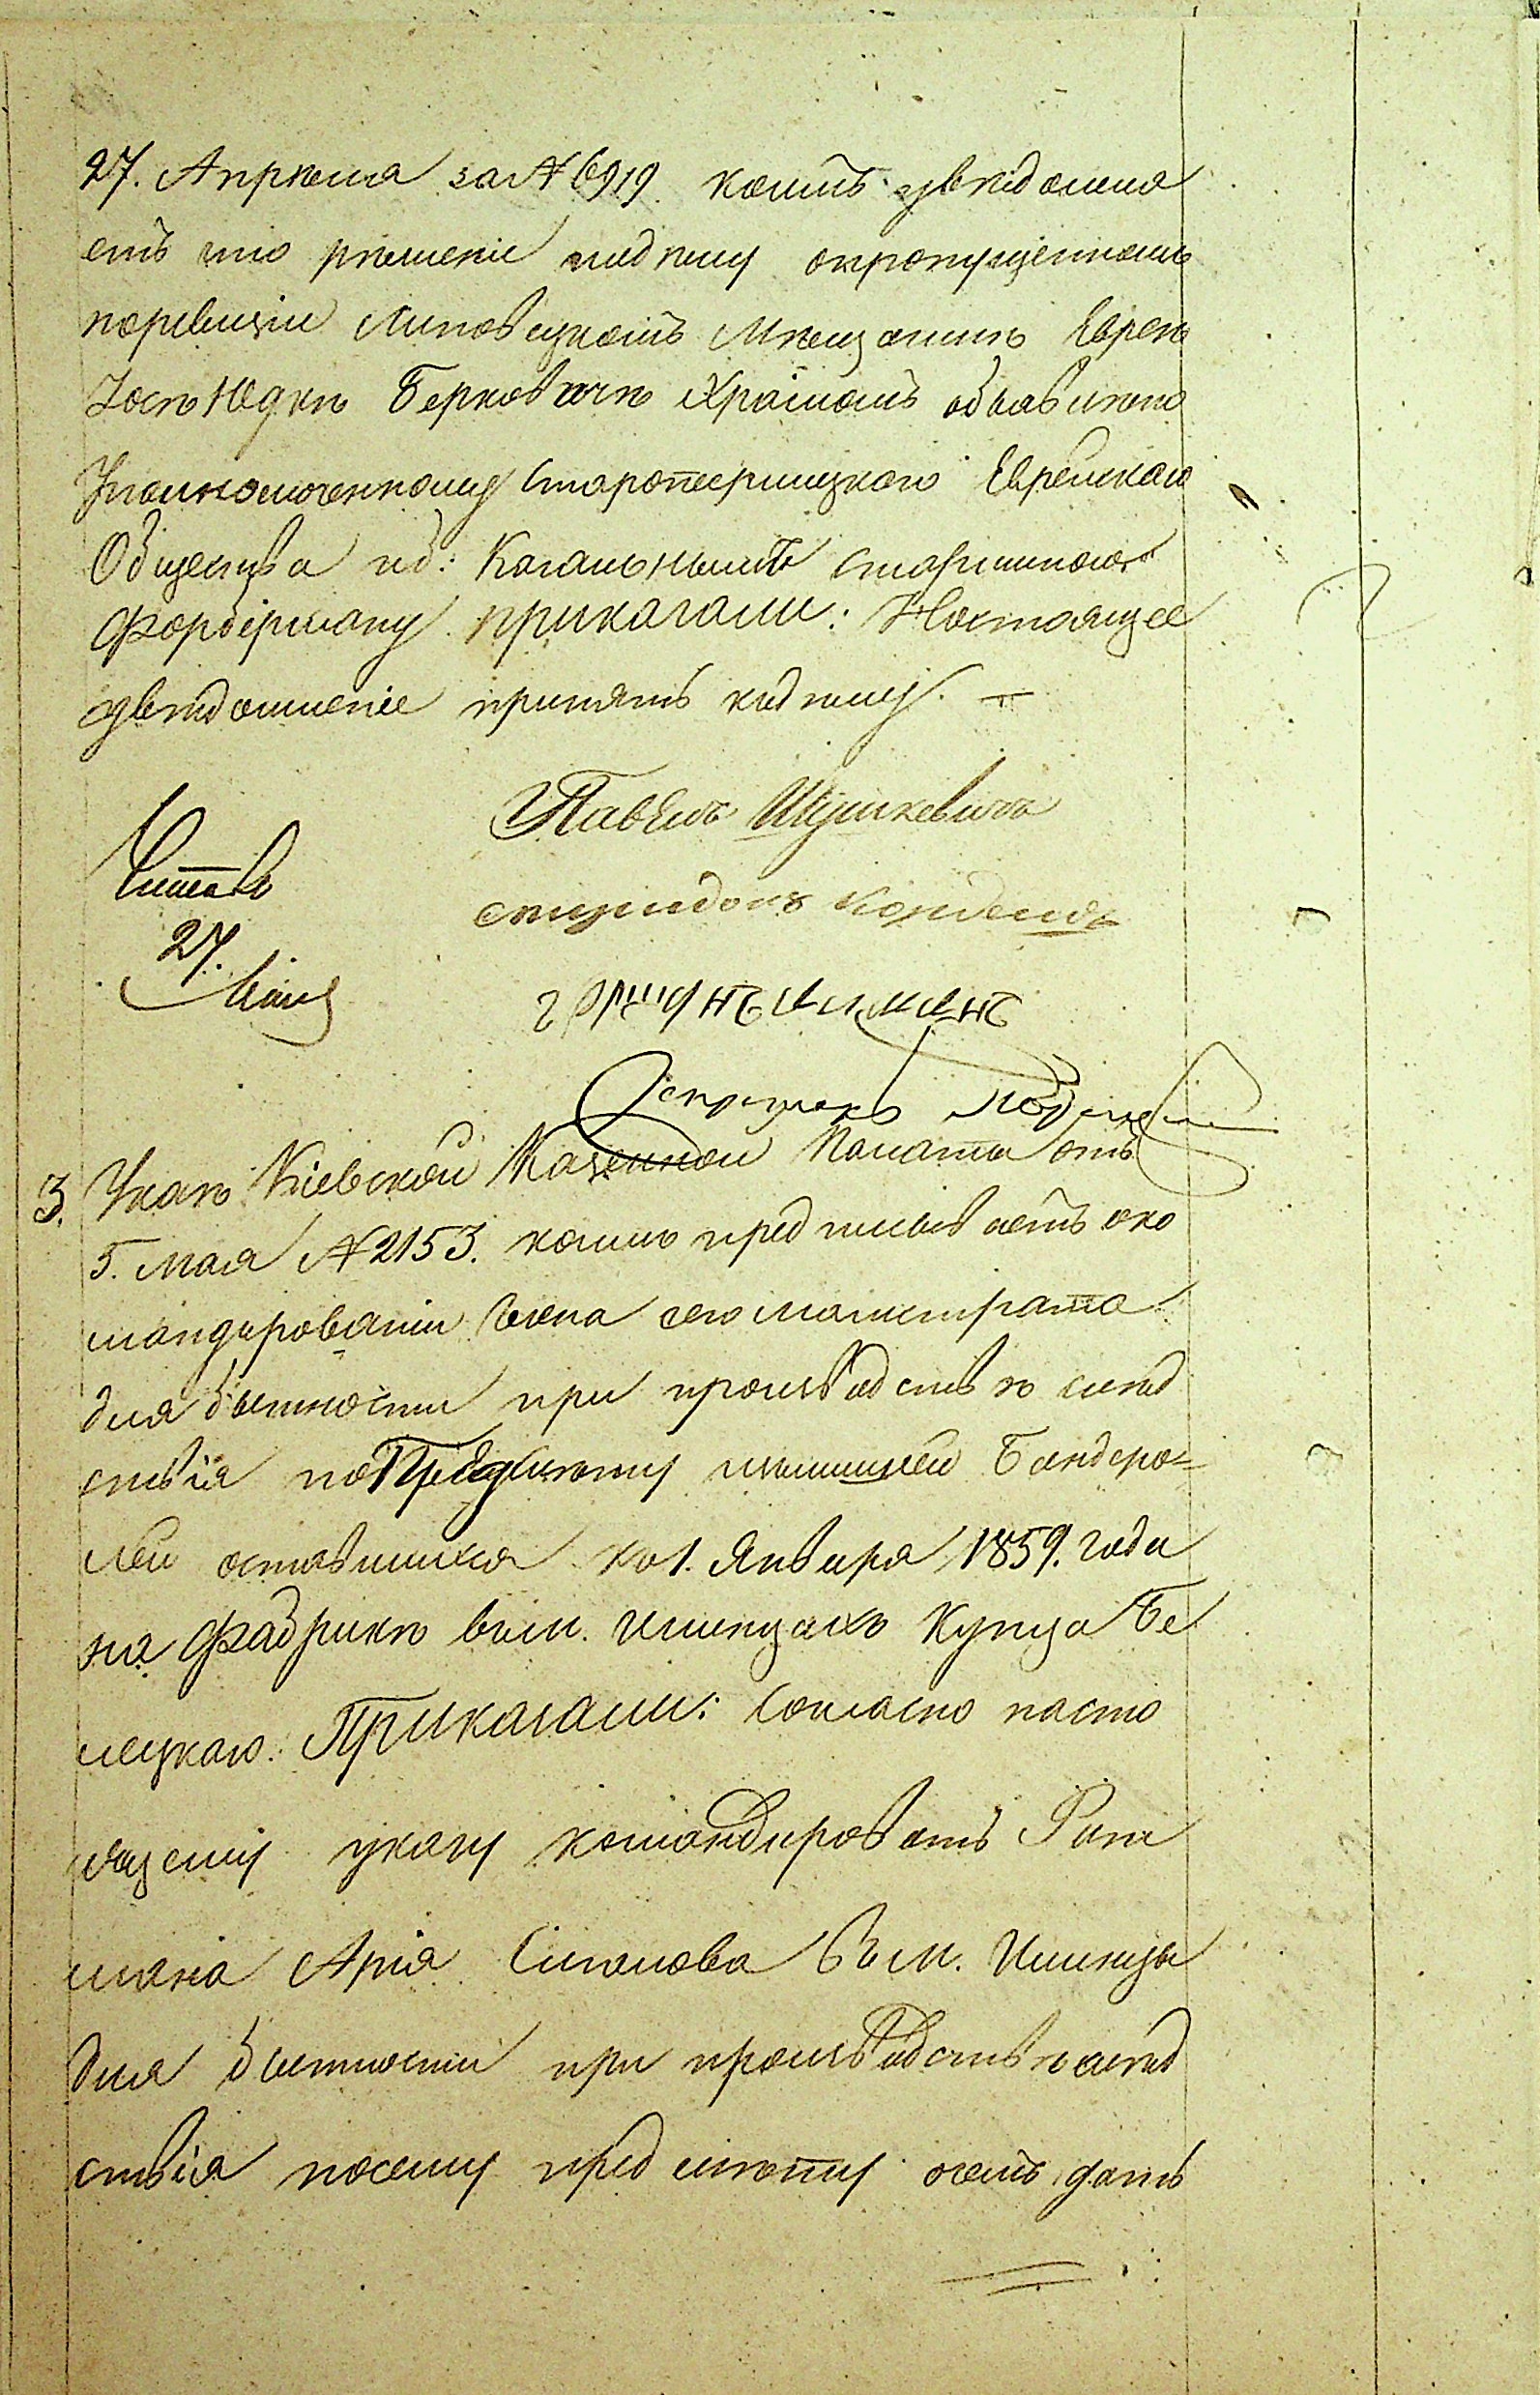 27. Апрѣля за № 6919. коимъ увѣдомля
етъ что рѣшеніе надѣлу опропущенномъ
поревизіи Липовецкомъ Мѣщанинѣ Евреѣ
Іосѣ Юдкѣ Берковичѣ объявлено
Уполномоченному Староперицкаго Еврейскаго
Общества Кагальнымъ старшиною
Фордерману приказали: Настоящее
увѣдомленіе принять кдѣлу. —
Павелъ Шушкевичъ
Читалъ
спиридонъ
27.
Секретарь
3. Указъ Кіевской Казенной Палаты отъ
5. мая № 2153. коимъ предписываетъ око
мандированіи Члена сего магистрата
для бытности при производствѣ слѣд
ствія по Предмету Бандеро=
лей оставшихся ко 1. Января 1859. года
на Фабрикѣ въ м. Илинцахъ Купца Бе
лецкаго. Приказали: Согласно насто
ящему указу командировать Рат
мана Арія Симонова въ м. Илинцы
для бытности при производствѣ слѣд
ствія посему предмету очемъ дать